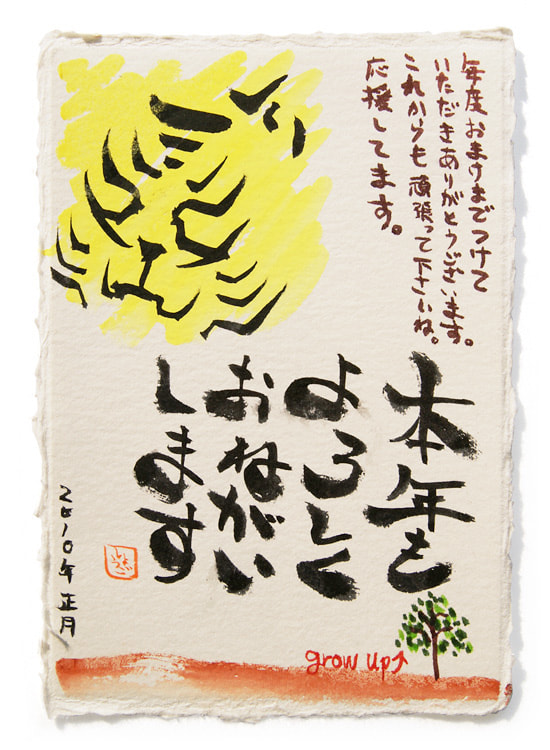 毎度おまけまでつけて
いただきありがとうございます。
これからも頑張って下さいね。
応援してます。
本年も
よろしく
おねがい
します
2010年 正月
grow up↑